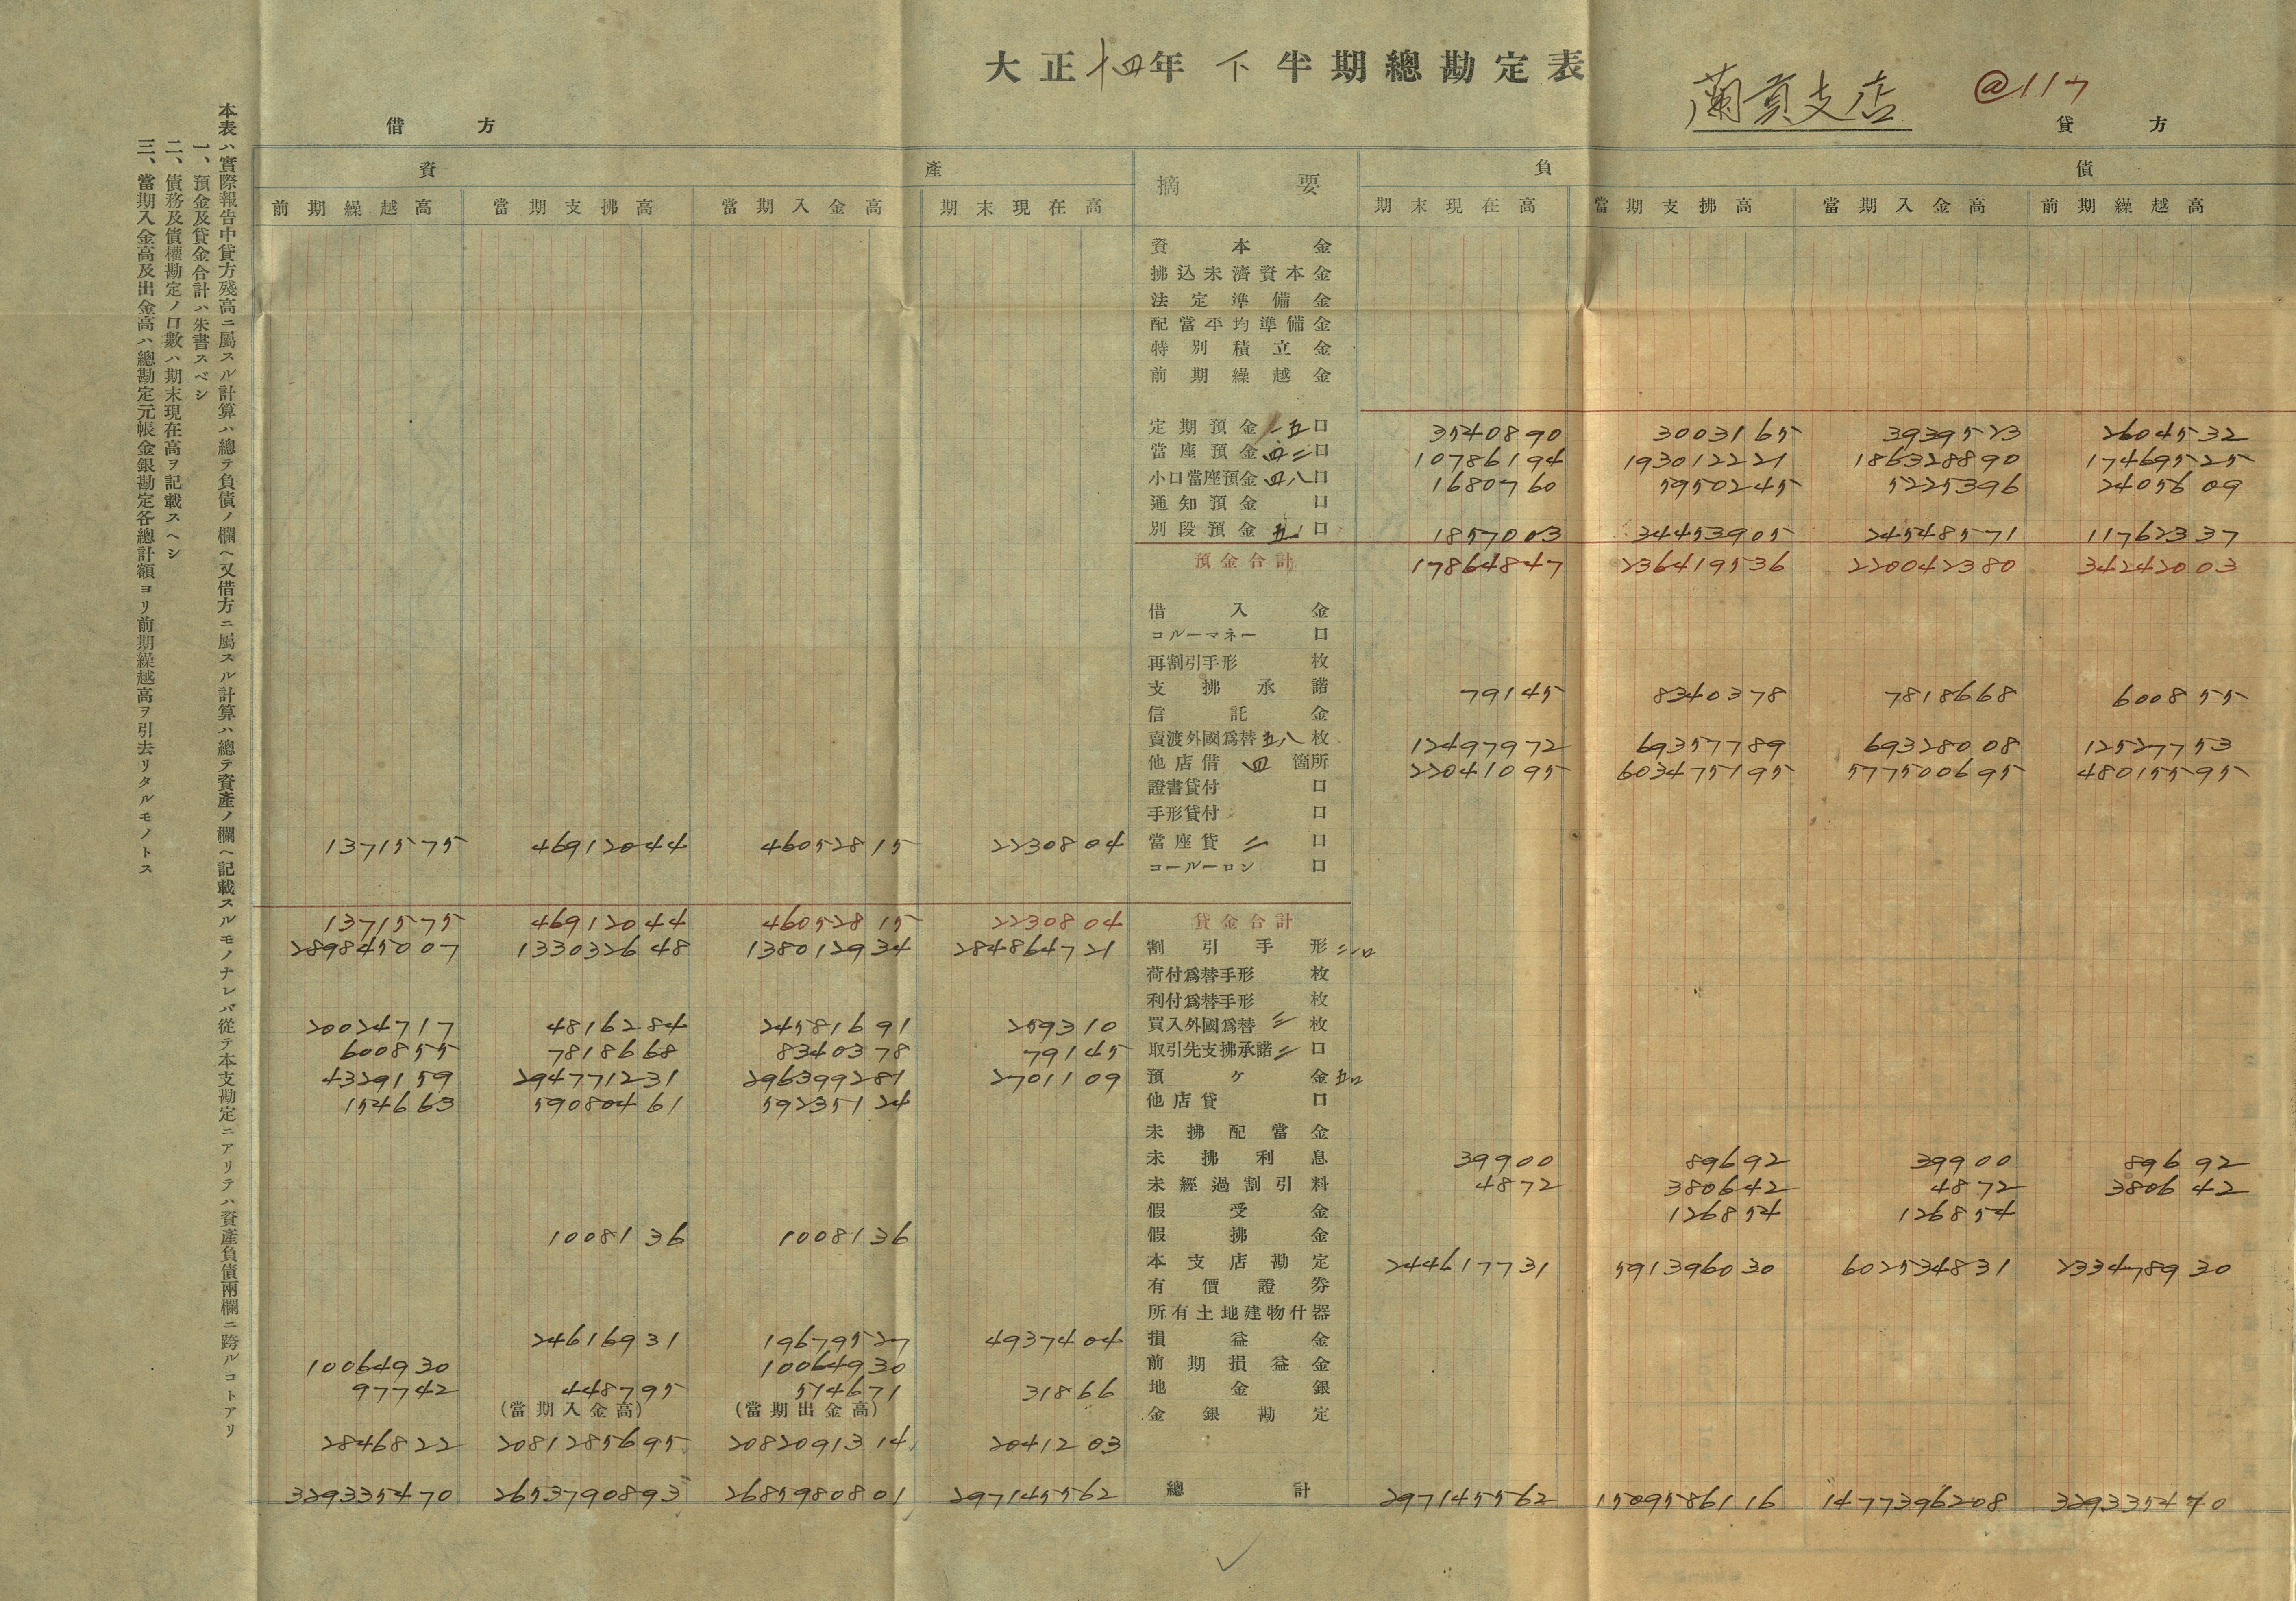 大正十四年 下 半期總勘定表
蘭貢支店
@117
借方
貸方
資產 摘要 負債
前期繰越高 當期支拂高 當期入金高 期末現在高 期末現在高 當期支拂高 當期入金高 前期繰越高
資本金
拂込未濟資本金
法定準備金
配當平均準備金
特別積立金
前期繰越金
定期預金 二五口 3540890 3003165 3939523 2604532
當座預金 四二口 10786194 193012221 186328890 17469525
小口當座預金 四八口 1680760 5950245 5225396 2405609
通知預金 口
別段預金 五口 1857003 34453905 24548571 11762337
預金合計 17864847 236419536 220042380 34242003
借入金
コルーマネー 口
再割引手形 枚
支拂承諾 79145 8340378 7818668 600855
信託金
賣渡外國爲替 五八枚 12497972 69357789 69328008 12527753
他店借 四 箇所 22041095 603475195 577500695 48015595
證書貸付 口
手形貸付 口
1371575 46912044 46052815 2230804 當座貸 二 口
コールーロン 口
1371575 46912044 46052815 2230804 貸金合計
289845007 133032648 138012934 284864721 割引手形 二一口
荷付爲替手形 枚
利付爲替手形 枚
20024717 4816284 24581691 259310 買入外國爲替 三 枚
600855 7818668 8340378 79145 取引先支拂承諾 二 口
4329159 294771231 296399281 2701109 預ケ金 五口
154663 59080461 59235124 他店貸 口
未拂配當金
未拂利息 39900 89692 39900 89692
未經過割引料 4872 380642 4872 380642
假受金 126854 126854
1008136 1008136 假拂金
本支店勘定 244617731 591396030 602534831 233478930
有價證券
所有土地建物什器
24616931 19679527 4937404 損益金
10064930 10064930 前期損益金
97742 448795 514671 31866 地金銀
(當期入金高) (當期出金高) 金銀勘定
2846822 2081285695 2082091314 2041203
329335470 2653790893 2685980801 297145562 總計 297145562 1509586116 1477396208 329335470
本表ハ實際報告中貸方殘高ニ屬スル計算ハ總テ負債ノ欄ヘ又借方ニ屬スル計算ハ總テ資產ノ欄ヘ記載スルモノナレバ從テ本支勘定ニアリテハ資產負債兩欄ニ跨ルコトアリ
一、預金及貸金合計ハ朱書スベシ
二、債務及債權勘定ノ口數ハ期末現在高ヲ記載スヘシ
三、當期入金高及出金高ハ總勘定元帳金銀勘定各總計額ヨリ前期繰越高ヲ引去リタルモノトス